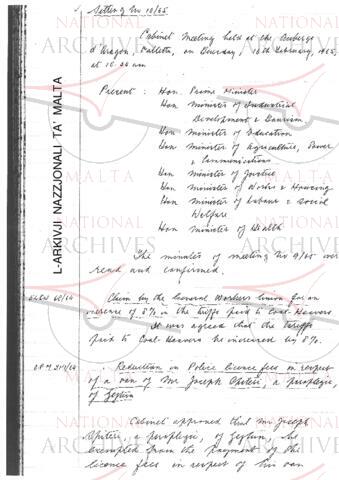 Meeting No 10/65
Cabinet Meeting held at the Auberge
d'Aragon, Valletta, on Thursday, 18th February, 1965,
at 10.30 am
Present : Hon. Prime Minister
Hon Minister of Industrial
Development & Tourism
Hon Minister of Education
Hon Minister of Agriculture, Power
& Communications
Hon Minister of Justice
Hon Minister of Works & Housing
Hon Minister of Labour & Social
Welfare
Hon Minister of Health
The minutes of meeting No 9/65 were
read and confirmed.
Claim by the General Workers Union for an
increase of 8% in the tariffs paid to Coal-Heavers
It was agreed that the tariffs
paid to Coal-Heavers be increased by 8%.
Reduction in Police licence fees in respect
of a van of Mr Joseph, a paraplegic,
of Zejtun
Cabinet approved that Mr Joseph
, a paraplegic, of Zejtun, be
exempted from the payment of the
licence fees in respect of his van
L-ARKIVJI NAZZJONALI TA' MALTA
NATIONAL
ARCHIVES
MALTA